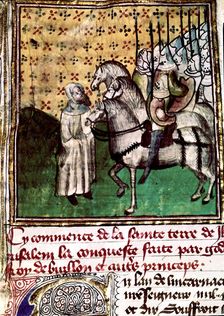 Cy commence de la sainte terre de Jh
rusalem la conqueste faite par god
fron de buillon et autres princeps.
n lan de lincarnac
nreseigneur mil
et dy Souffroit